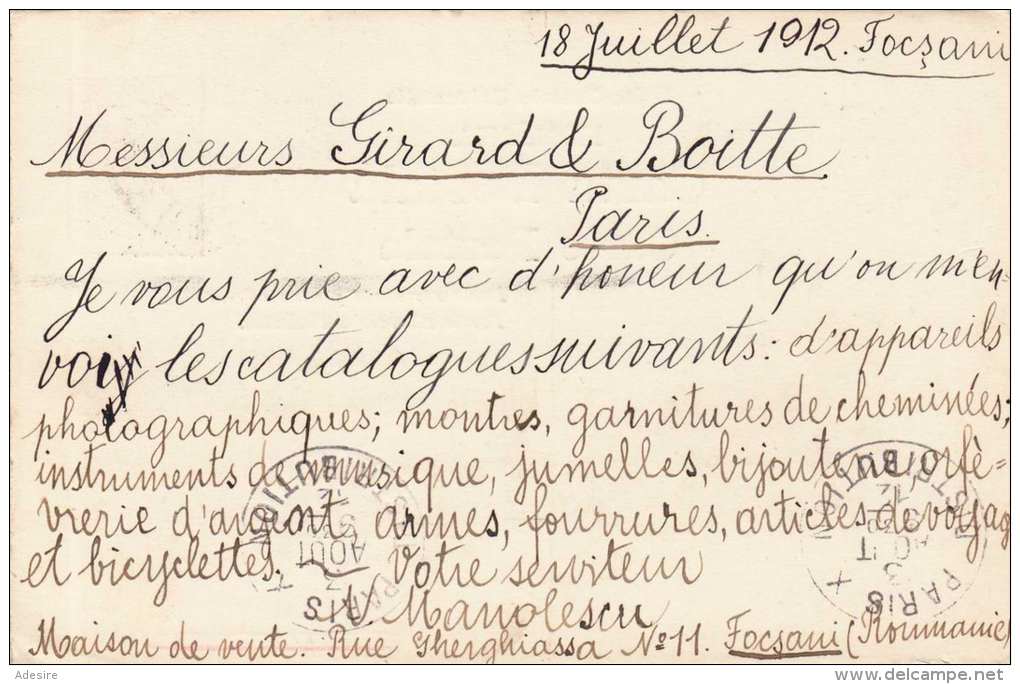 18 Juillet 1912. Focşani
Messieurs Girard & Boitte,
Paris.
Je vous prie avec d'honeur qu'on m'en-
voiy les catalogues suivants: d'appareils
photographiques; montres, garnitures de cheminées;
instruments de musique, jumelles, bijouterie, orfè-
vrerie d'argent, armes, fourrures, articles de voyag
et bicyclettes. Votre serviteur
J. Manolescu
Maison de vente. Rue Gherghiassa No 11. Focşani (Roumanie)
PARIS DISTRIBUTION
AOUT
PARIS DISTRIBUTION
AOUT
Adesire
www.delcampe.net